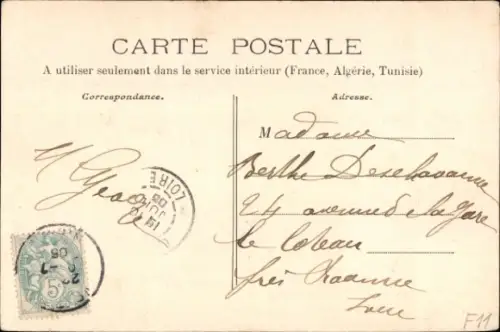 CARTE POSTALE
A utiliser seulement dans le service intérieur (France, Algérie, Tunisie)
Correspondance.
Adresse.
Madame
Berthe
24 avenue de la Gare
le Coteau
près Roanne
Loire
LOIRE
5c
F11